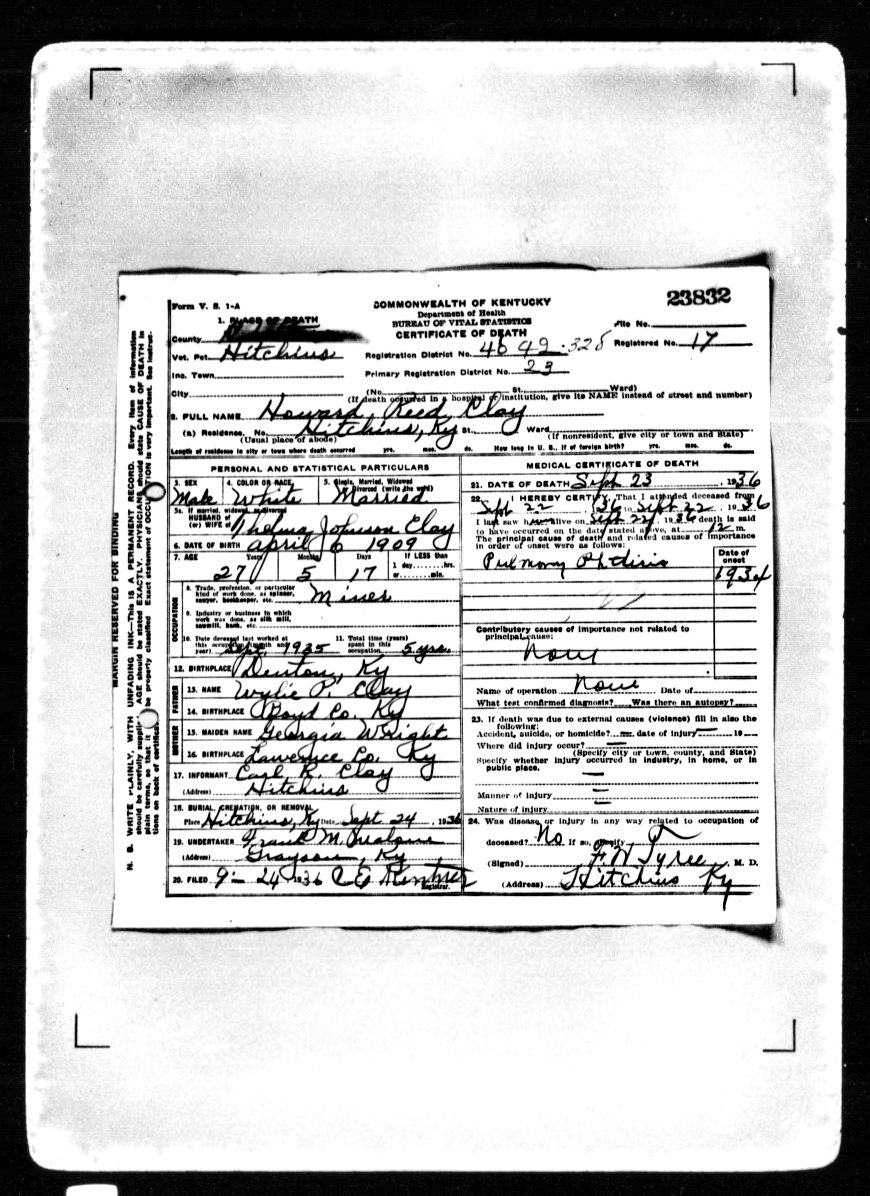 Form V. S. 1-A
COMMONWEALTH OF KENTUCKY
Department of Health
BUREAU OF VITAL STATISTICS
CERTIFICATE OF DEATH
23832
File No.
Registered No. 17
1. PLACE OF DEATH
County
Vot. Pct. Hitchins
Registration District No. 4649-325
Inc. Town
Primary Registration District No. 23
City (No. St. Ward)
(If death occurred in a hospital or institution, give its NAME instead of street and number)
2. FULL NAME Howard Reed Clay
(a) Residence. No. Hitchins, Ky St. Ward
(Usual place of abode) (If nonresident, give city or town and State)
Length of residence in city or town where death occurred yrs. mos. ds. How long in U. S., if of foreign birth? yrs. mos. ds.
PERSONAL AND STATISTICAL PARTICULARS
3. SEX Male
4. COLOR OR RACE White
5. Single, Married, Widowed or Divorced (write the word) Married
5a. If married, widowed, or divorced
HUSBAND of
(or) WIFE of Thelma Johnson Clay
6. DATE OF BIRTH april 6 1909
7. AGE Years 27 Months 5 Days 17 If LESS than 1 day hrs. or min.
OCCUPATION
8. Trade, profession, or particular kind of work done, as spinner, sawyer, bookkeeper, etc. Miner
9. Industry or business in which work was done, as silk mill, sawmill, bank, etc.
10. Date deceased last worked at this occupation (month and year) Sept. 1935
11. Total time (years) spent in this occupation 5 yrs.
12. BIRTHPLACE Denton, Ky
FATHER
13. NAME Wylie P. Clay
14. BIRTHPLACE Boyd Co. Ky
MOTHER
15. MAIDEN NAME Georgia Wright
16. BIRTHPLACE Lawrence Co. Ky
17. INFORMANT Carl R. Clay
(Address) Hitchins
18. BURIAL, CREMATION, OR REMOVAL
Place Hitchins, Ky Date Sept 24, 1936
19. UNDERTAKER Frank M. Malone
(Address) Grayson, Ky
20. FILED 9-24 1936 C E
Registrar.
MEDICAL CERTIFICATE OF DEATH
21. DATE OF DEATH Sept 23 1936
22. I HEREBY CERTIFY, That I attended deceased from
Sept 22 36 to Sept 22 1936
I last saw him alive on Sept 22, 1936 death is said
to have occurred on the date stated above, at 12 m.
The principal cause of death and related causes of importance
in order of onset were as follows:
Date of onset
Pulmonary Phthisis 1934
Contributory causes of importance not related to
principal cause:
None
Name of operation None Date of
What test confirmed diagnosis? Was there an autopsy?
23. If death was due to external causes (violence) fill in also the
following:
Accident, suicide, or homicide? date of injury 19
Where did injury occur?
(Specify city or town, county, and State)
Specify whether injury occurred in industry, in home, or in
public place.
Manner of injury
Nature of injury
24. Was disease or injury in any way related to occupation of
deceased? No If so, specify
(Signed) F. W. Tyree, M. D.
(Address) Hitchins Ky
MARGIN RESERVED FOR BINDING
N. B. WRITE PLAINLY, WITH UNFADING INK—This is A PERMANENT RECORD. Every item of information
should be carefully supplied. AGE should be stated EXACTLY. PHYSICIANS should state CAUSE OF DEATH in
plain terms, so that it may be properly classified. Exact statement of OCCUPATION is very important. See instruc-
tions on back of certificate.